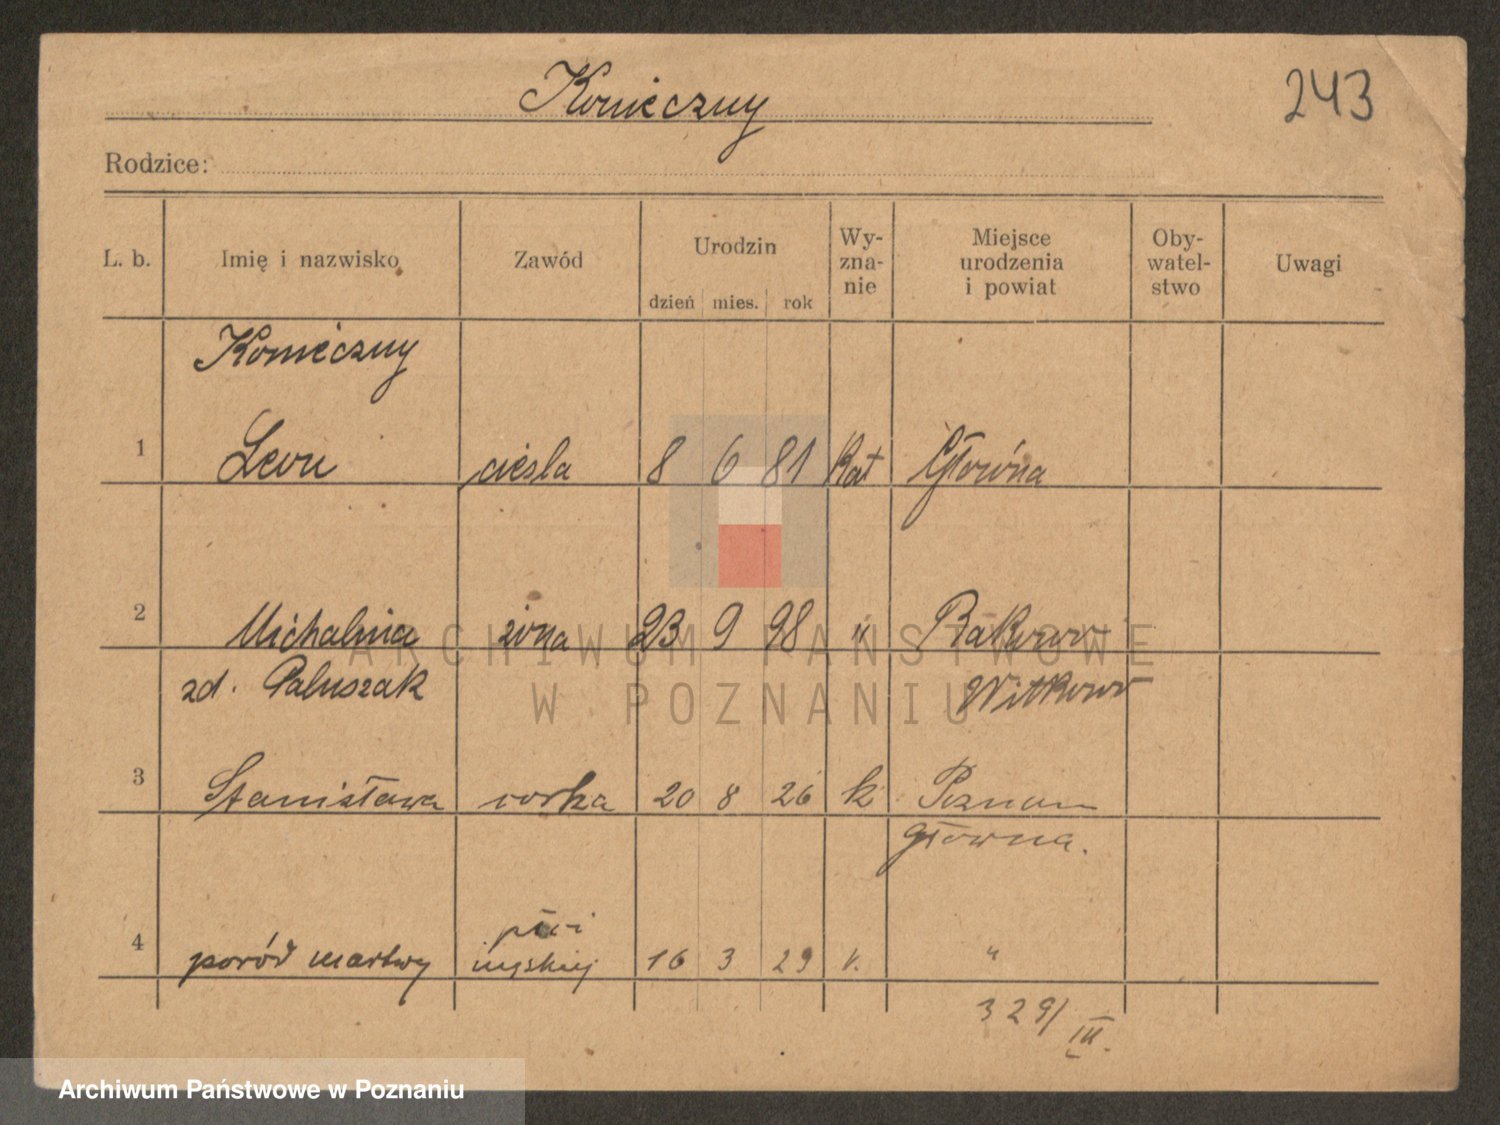 Konieczny
243
Rodzice:
L. b.
Imię i nazwisko
Zawód
Urodzin
dzień mies. rok
Wy-
zna-
nie
Miejsce
urodzenia
i powiat
Oby-
watel-
stwo
Uwagi
Konieczny
1 Leon cieśla 8 6 81 Kat Główna
2 Michalina żona 23 9 98 " Rakowo
zd. Paluszak Witkowo
3 Stanisława corka 20 8 26 k Poznan
główna.
płci
4 poród martwy męskiej 16 3 29 "
329/III.
ARCHIWUM PAŃSTWOWE
W POZNANIU
Archiwum Państwowe w Poznaniu